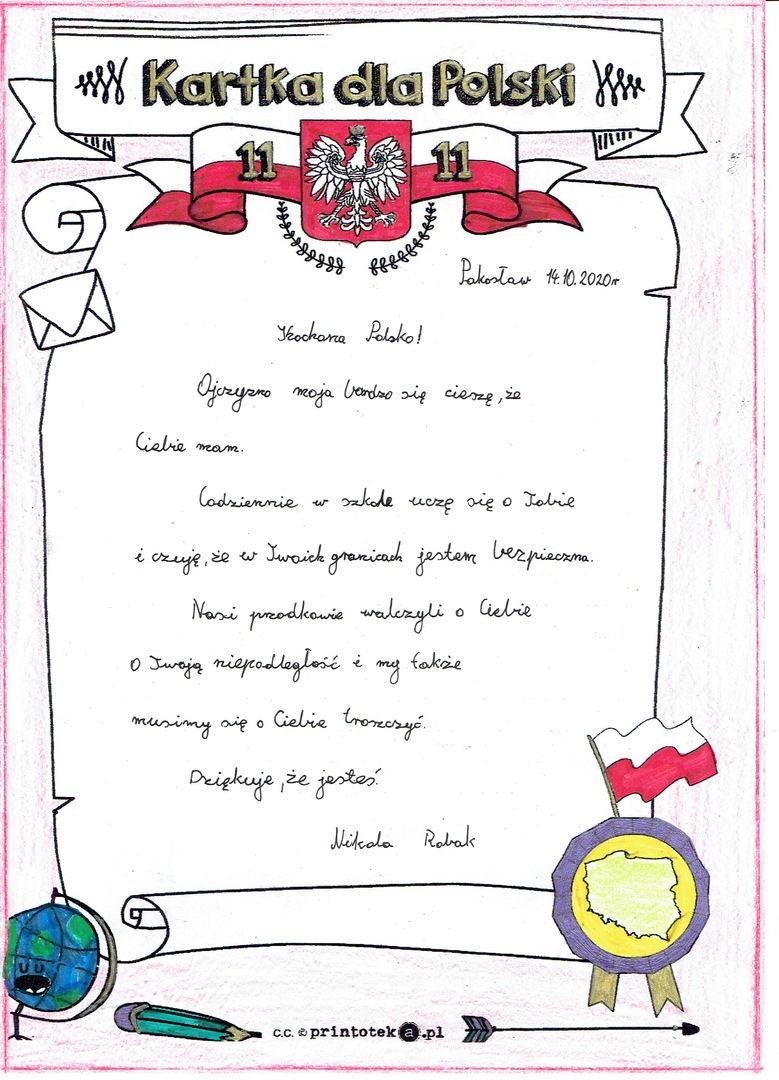 Kartka dla Polski
11 11
Pakosław 14.10.2020r
Kochana Polsko!
Ojczyzno moja bardzo się cieszę, że
Ciebie mam.
Codziennie w szkole uczę się o Tobie
i czuję, że w Twoich granicach jestem bezpieczna.
Nasi przodkowie walczyli o Ciebie
o Twoją niepodległość i my także
musimy się o Ciebie troszczyć.
Dziękuje, że jesteś.
Nikola Robak
c.c. © printoteka.pl